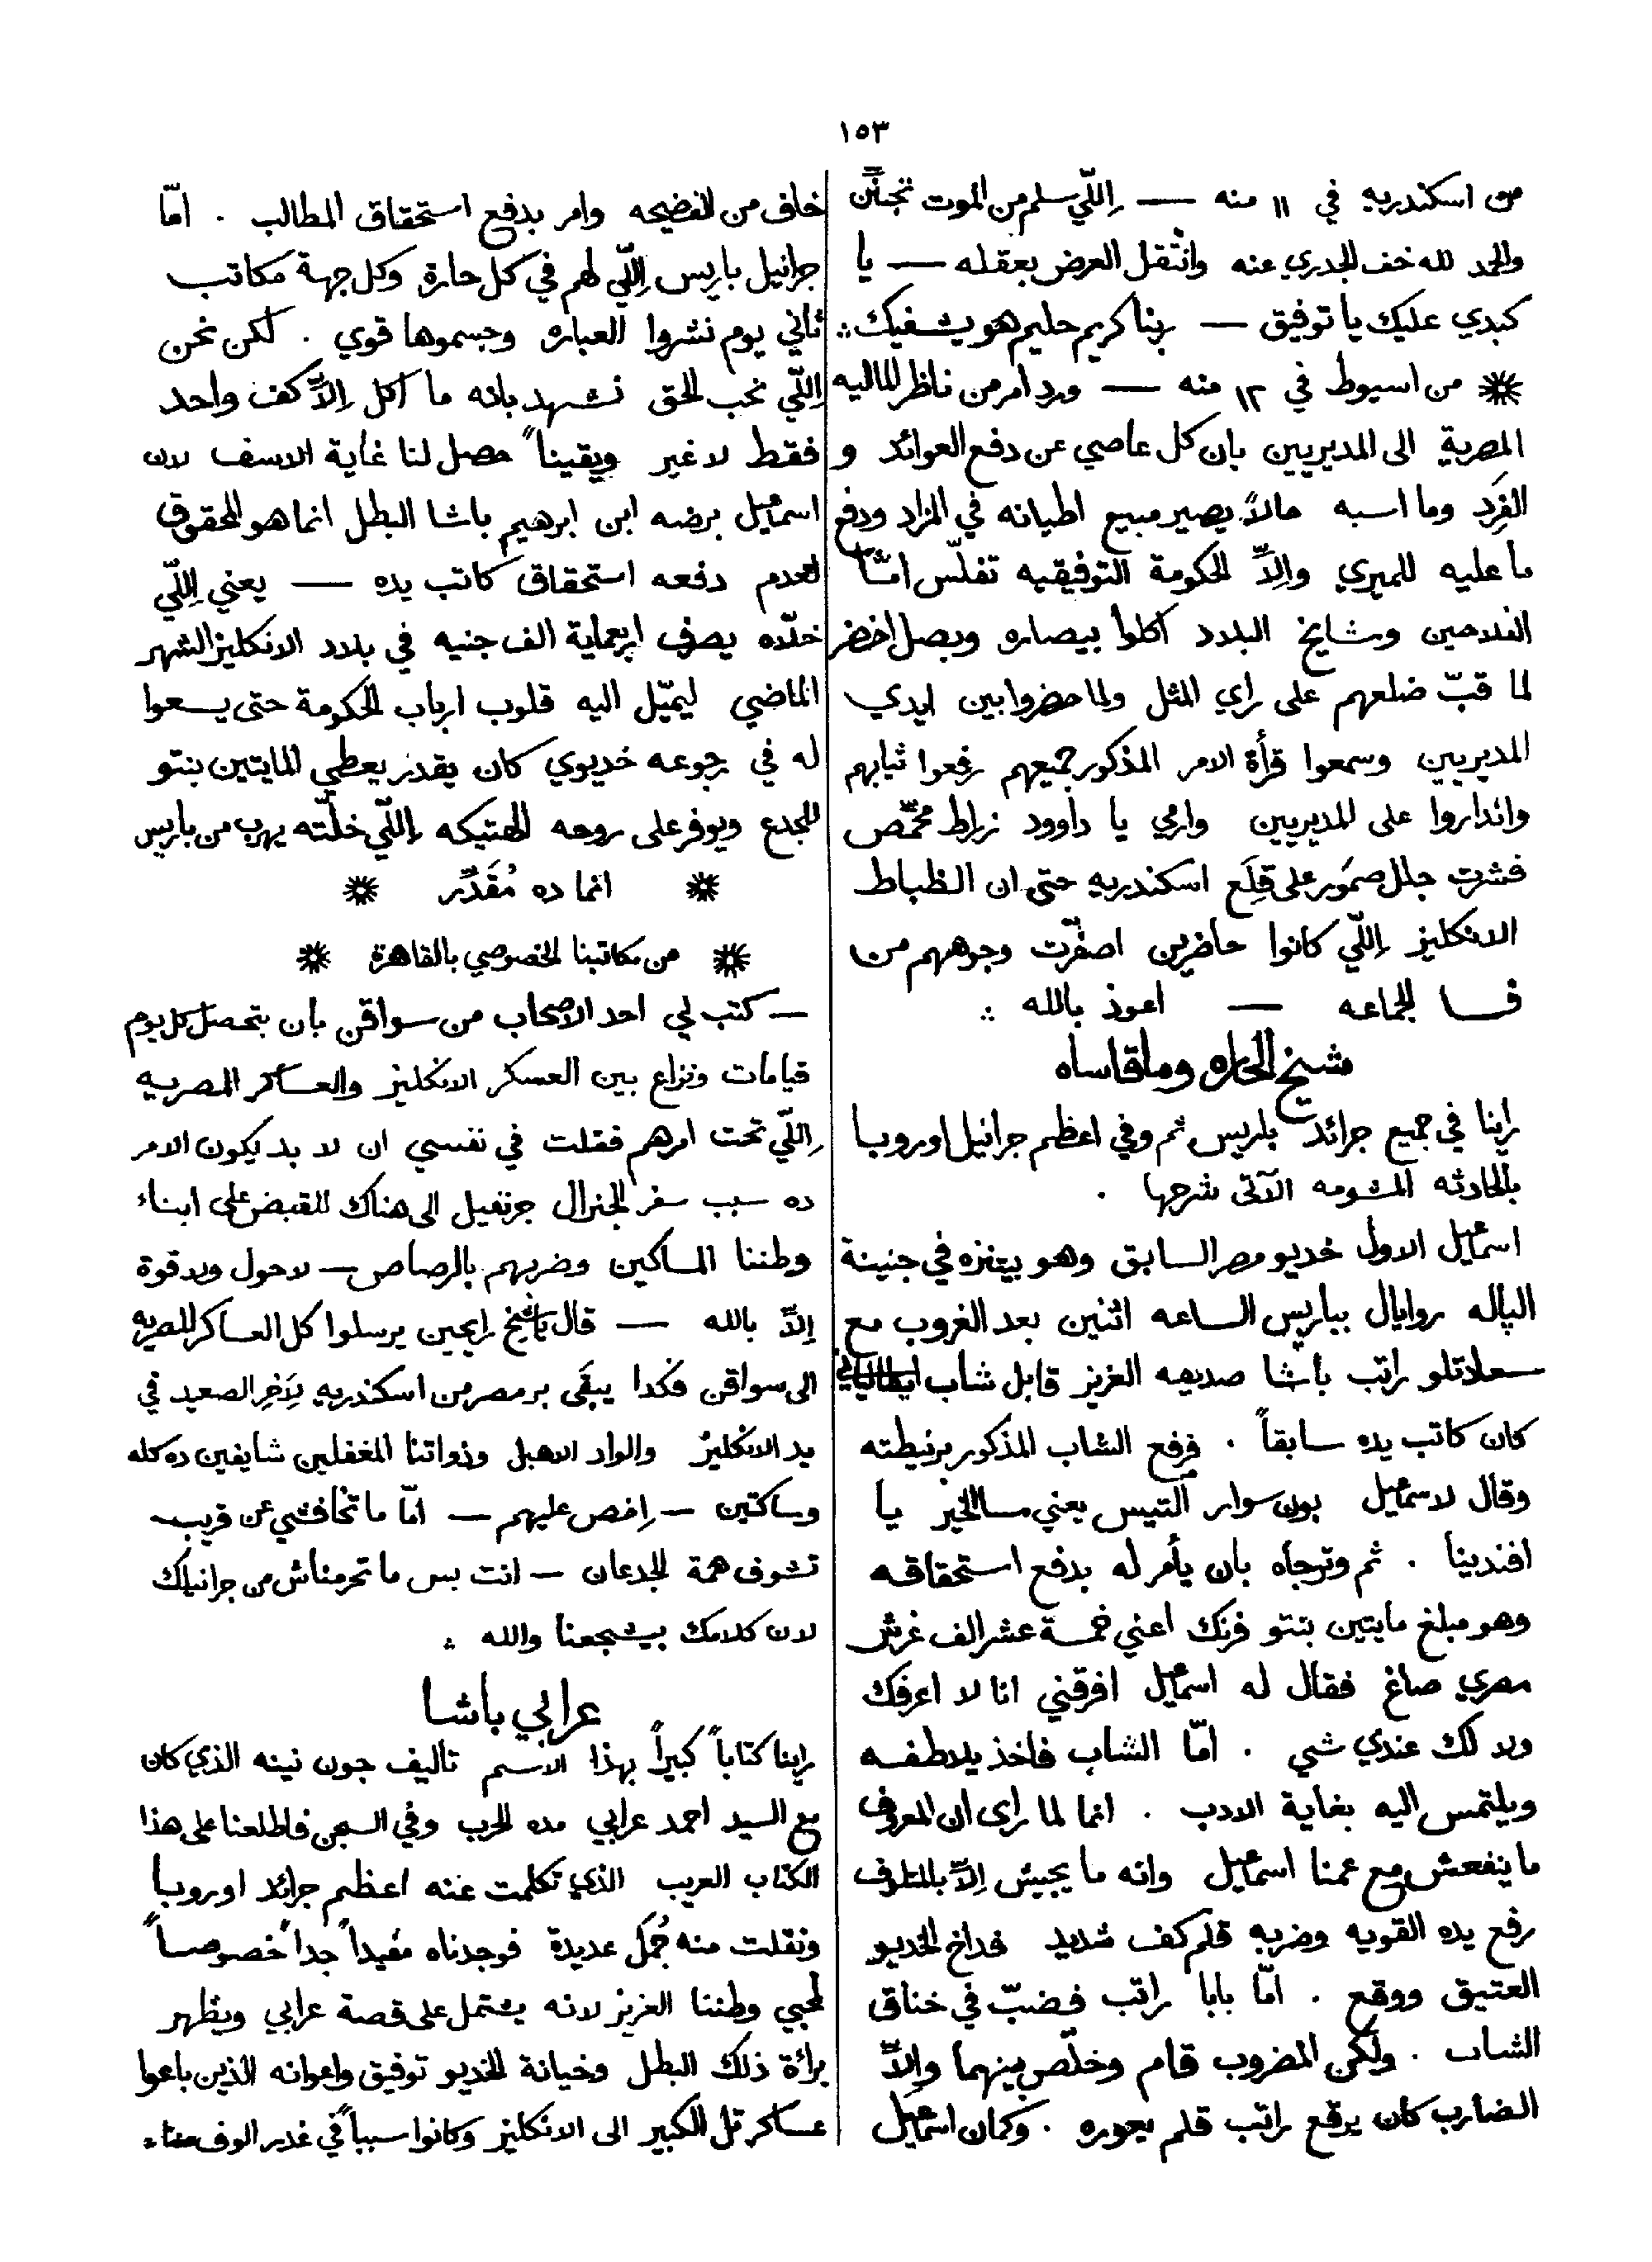 ١٥٣
من اسكندريه في ١١ منه — اِللّي سلم من الموت تجنَّن
والحمد لله خف الجدري عنه وانتقل المرض بعقله — يا
كبدي عليك يا توفيق — ربنا كريم حليم هو يشفيك ∴
❋ من اسيوط في ١٢ منه — ورد امر من ناظر الماليه
المصرية الى المديريين بان كل عاصي عن دفع العوائد و
الفِرَد وما اسبه حالاً يصير مبيع اطيانه في المزاد ودفع
ما عليه للميري والاّ الحكومة التوفيقيه تفلّس امّا
الفلاحين ومشايخ البلاد اكلوا بيصاره وبصل اخضر
لما قبّ ضلعهم على راي المثل ولما حضروا بين ايدي
المديريين وسمعوا قرأة الامر المذكور جميعهم رفعوا ثيابهم
وانداروا على المديريين وارمي يا داوود زراط محمّص
فشرت جلل صمور على قِلَع اسكندريه حتى ان الظباط
الانكليز اِللّي كانوا حاضرين اصفرّت وجوههم من
فسا الجماعه — اعوذ بالله ∴
شيخ الحاره وما قاساه
راينا في جميع جرائد باريس ثم وفي اعظم جرانيل اوروبا
بالحادثه المشومه الآتى شرحها .
اسمعيل الاول خديو مصر السابق وهو بيتنزه في جنينة
الپاله روايال بباريس الساعه اثنين بعد الغروب مع
سعادتلو راتب باشا صديقه العزيز قابل شاب ايطالياني
كان كاتب يده سابقاً . فرفع الشاب المذكور برنيطته
وقال لاسمعيل بون سوار التيس يعني مسا الخير يا
افندينا . ثم وترجاه بان يأمر له بدفع استحقاقه
وهو مبلغ مايتين بنتو فرنك اعني خمسة عشر الف غرش
مصري صاغ فقال له اسمعيل افرقني انا لا اعرفك
ولا لك عندي شي . امّا الشاب فاخذ يلاطفه
ويلتمس اليه بغاية الادب . انما لما راى ان المعروف
ما ينفعش مع عمنا اسمعيل وانه ما يجيش اِلاّ بالمتلوف
رفع يده القويه وضربه قلم كف شديد فداخ الخديو
العتيق ووقع . امّا بابا راتب فضبّ في خناق
الشاب . ولكن المضروب قام وخلّص بينهما والاّ
الضارب كان يرقع راتب قلم يعوره . وكمان اسمعيل
خاف من الفضيحه وامر بدفع استحقاق المطالب . امّا
جرانيل باريس اِللّي لهم في كل حارة وكل جهة مكاتب
ثاني يوم نشروا العباره وجسموها قوي . لكن نحن
اِللّي نحب الحق نشهد بانه ما اكل اِلاّ كف واحد
فقط لا غير ويقيناً حصل لنا غاية الاسف لان
اسمعيل برضه ابن ابرهيم باشا البطل انما هو المحقوق
لعدم دفعه استحقاق كاتب يده — يعني اِللّي
خلّاه يصرف اربعماية الف جنيه في بلاد الانكليز الشهر
الماضي ليميّل اليه قلوب ارباب الحكومة حتى يسعوا
له في رجوعه خديوي كان يقدر يعطي المايتين بنتو
للجدع ويوفر على روحه الهتيكه اِللّي خلّته يهرب من باريس
❋ انما ده مُقَدَّر ❋
❋ من مكاتبنا الخصوصي بالقاهرة ❋
— كتب لي احد الاصحاب من سواقن بان بتحصل كل يوم
قيامات ونزاع بين العسكر الانكليز والعساكر المصريه
اِللّي تحت امرهم فقلت في نفسي ان لا بد يكون الامر
ده سبب سفر الجنرال جرنفيل الى هناك للقبض على ابناء
وطننا المساكين وضربهم بالرصاص — لا حول ولا قوة
اِلاّ بالله — قال ياشيخ رايحين يرسلوا كل العساكر المصريه
الى سواقن فكدا يبقى بر مصر من اسكندريه لِآخِر الصعيد في
يد الانكليز والواد الاهبل وذواتنا المغفلين شايفين ده كله
وساكتين — اِخص عليهم — امّا ما تخافشي عن قريب
تشوف همة الجدعان — انت بس ما تحرمناش من جرانيلك
لان كلامك بيشجعنا والله ∴
عرابي باشا
راينا كتاباً كبيراً بهذا الاسم تاليف جون نينه الذي كان
مع السيد احمد عرابي مده الحرب وفي السجن فاطلعنا على هذا
الكتاب العريب الذي تكلمت عنه اعظم جرائد اوروبا
ونقلت منه جُمَل عديدة فوجدناه مفيداً جداً خصوصاً
لمحبي وطننا العزيز لانه يشتمل على قصة عرابي ويظهر
برائة ذلك البطل وخيانة الخديو توفيق واعوانه الذين باعوا
عساكر تل الكبير الى الانكليز وكانوا سبباً في غدر الوف